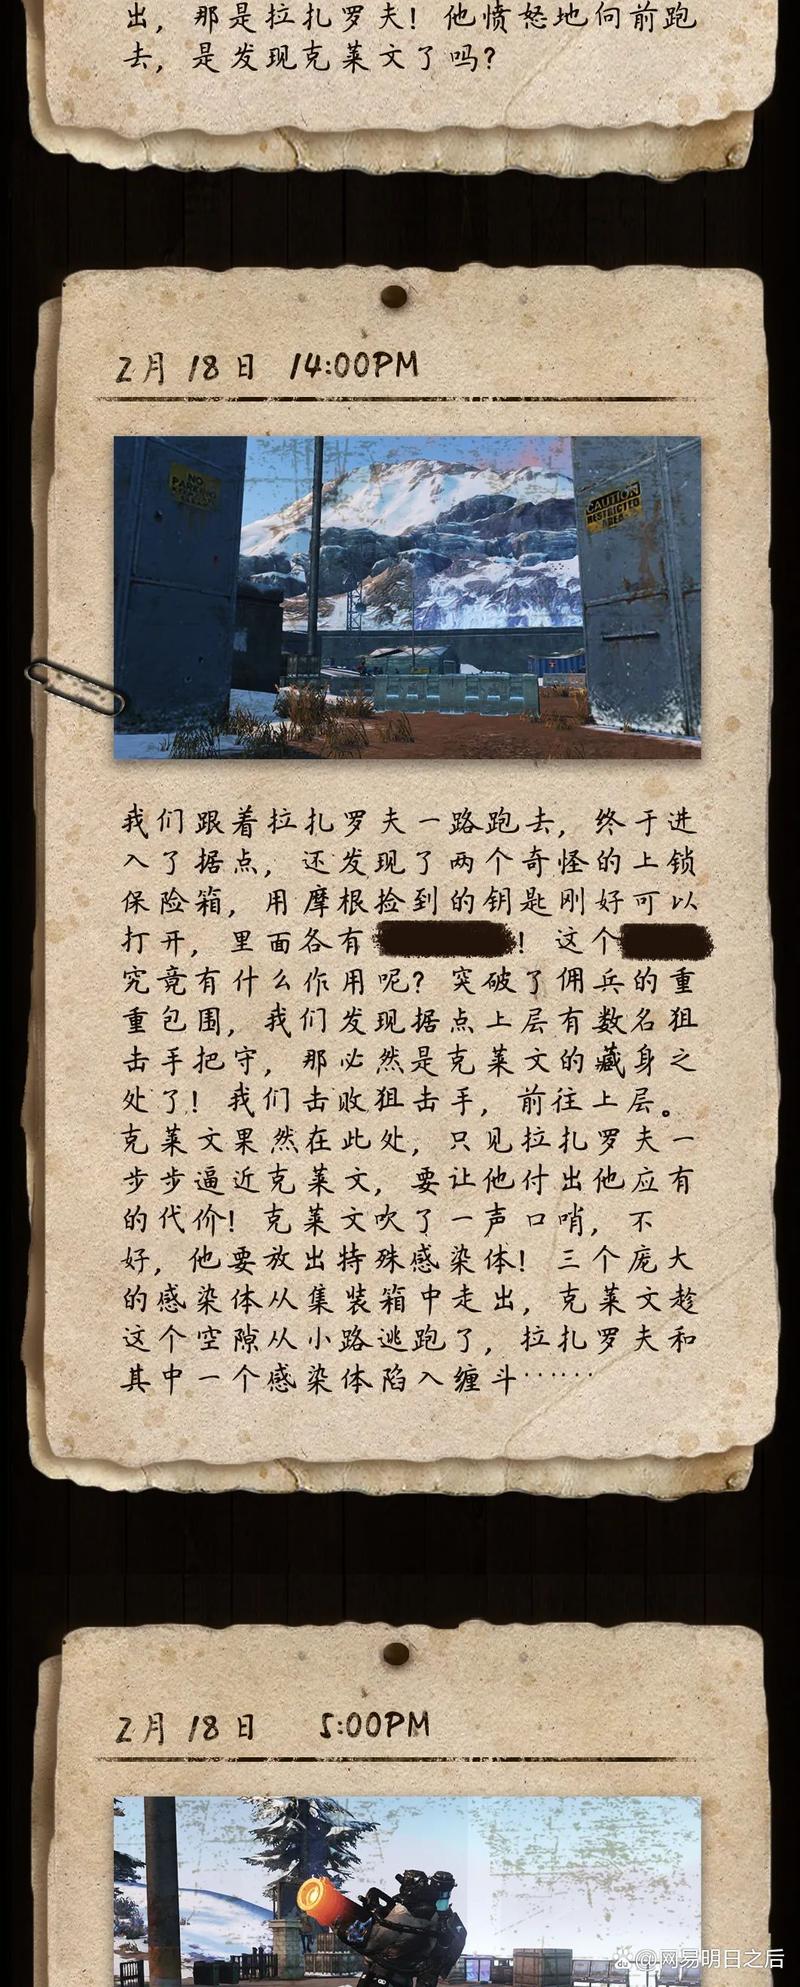 出，那是拉扎罗夫！他愤怒地向前跑
去，是发现克莱文了吗？
2月18日 14:00PM
NO
PARKING
CAUTION
RESTRICTED
AREA
我们跟着拉扎罗夫一路跑去，终于进
入了据点，还发现了两个奇怪的上锁
保险箱，用摩根捡到的钥匙刚好可以
打开，里面各有！这个
究竟有什么作用呢？突破了佣兵的重
重包围，我们发现据点上层有数名狙
击手把守，那必然是克莱文的藏身之
处了！我们击败狙击手，前往上层。
克莱文果然在此处，只见拉扎罗夫一
步步逼近克莱文，要让他付出他应有
的代价！克莱文吹了一声口哨，不
好，他要放出特殊感染体！三个庞大
的感染体从集装箱中走出，克莱文趁
这个空隙从小路逃跑了，拉扎罗夫和
其中一个感染体陷入缠斗……
2月18日 5:00PM
@网易明日之后